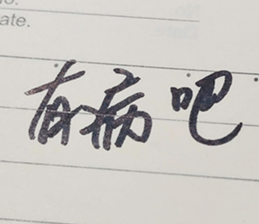 no.
ate.
有病吧